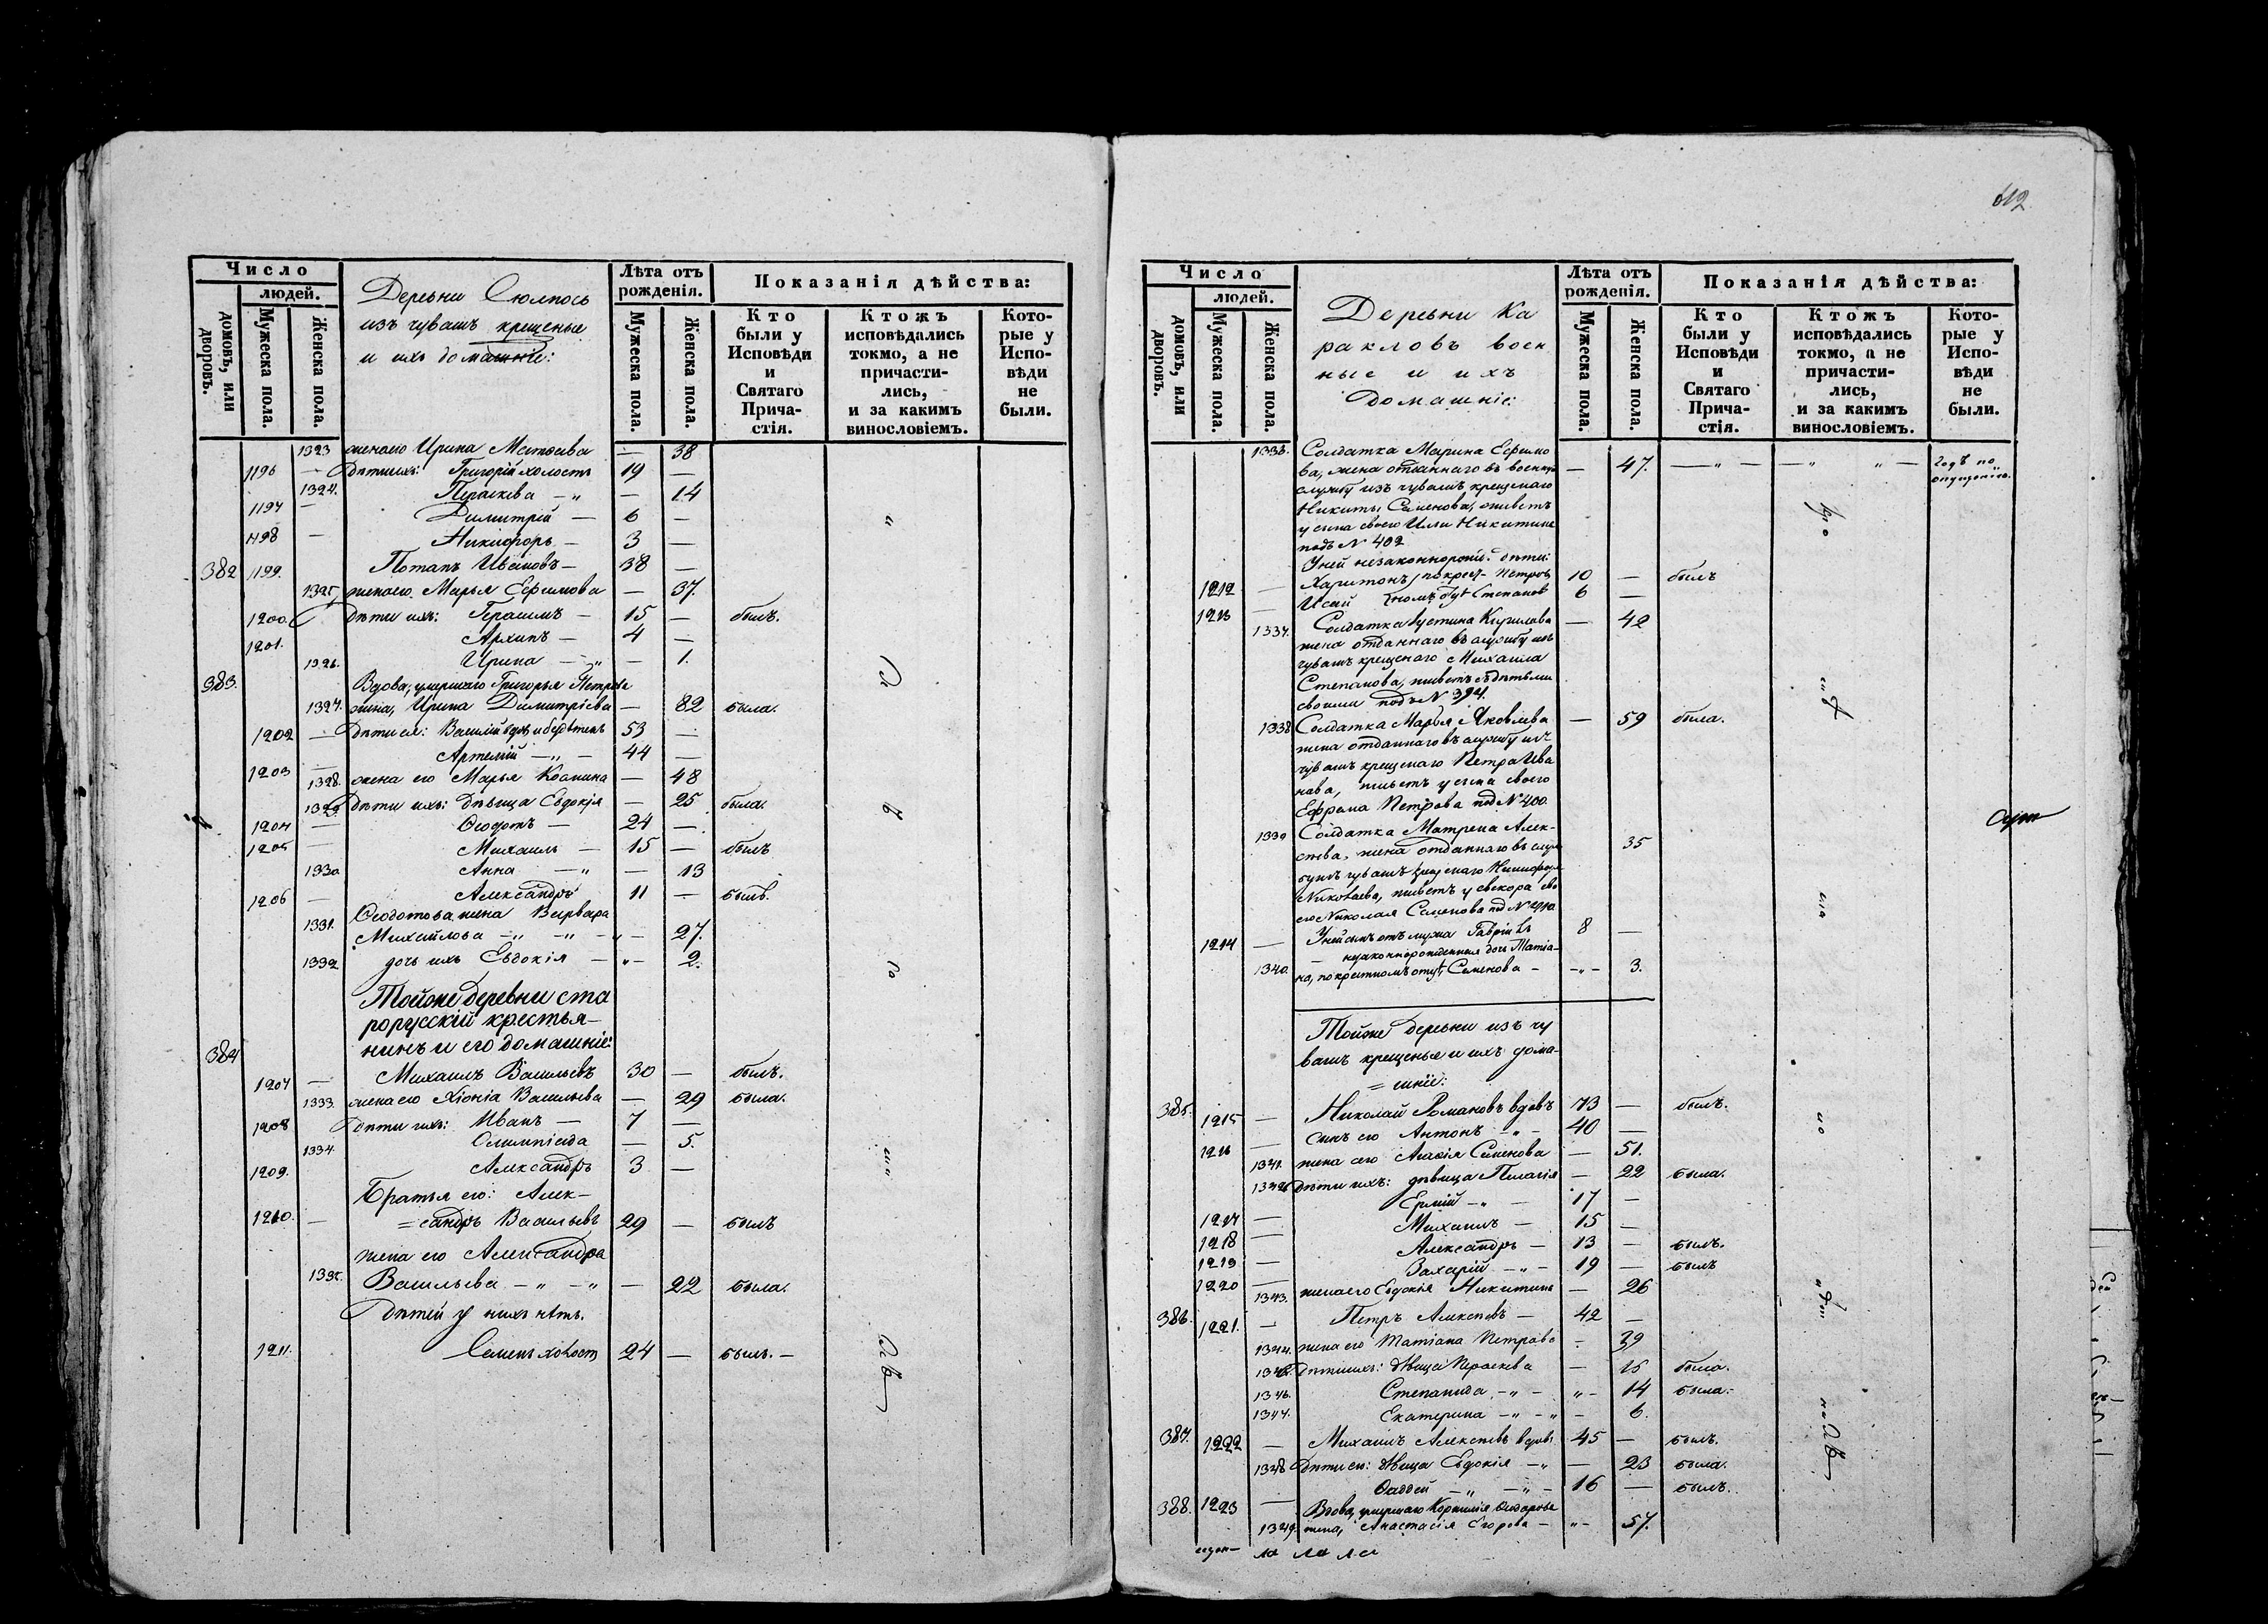 612
Число
людей.
домовъ, или дворовъ.
Мужеска пола.
Женска пола.
Деревни Сюлпось
изъ чувашъ крещеные
и ихъ домашніе:
Лѣта отъ рожденія.
Мужеска пола.
Женска пола.
Показанія дѣйства:
Кто были у Исповѣди и Святаго Прича-стія.
Ктожъ исповѣдались токмо, а не причасти-лись, и за какимъ винословіемъ.
Кото-рые у Испо-вѣди не были.
1323 жена его Ирина Матвѣева — 38
1196 — Дѣти ихъ: Григорій холостъ 19 —
1324. Параскева — 14
1197 — Димитрій — 6 —
1198 — Никифоръ — 3 —
382 1199. Потапъ Ивановъ — 38 —
1325 жена его Марья Ефимова — 37.
1200 Дѣти ихъ: Герасимъ — 15 — былъ.
1201. Архипъ — 4 —
1326. Ирина — 1.
383. Вдова, умершаго Григорья Петрова
1327. жена, Ирина Димитріева — 82 была.
1202 — Дѣти ея: Василій 53 —
1203 — Артемій 44 —
1328. жена его Марья — 48
1329 Дѣти ихъ: дѣвица Евдокія — 25 была.
1204 — Ѳеодотъ — 24 —
1205 — Михаилъ — 15 — былъ
1330 Анна — 13
1206 — Александръ 11 — былъ.
1331. Ѳеодотова жена Варвара
Михайлова — 27.
1332 дочь ихъ Евдокія — 2.
Тойже деревни ста
рорусскій крестья-
нинъ и его домашніе:
384
1207 — Михаилъ Васильевъ 30 — былъ.
1333. жена его Хіонія Васильева — 29 была.
1208 Дѣти ихъ: Иванъ — 7 —
1334. Олимпіада — 5.
1209. Александръ 3 —
Братья его: Алек-
1210. — =сандръ Васильевъ 29 — былъ
жена его Александра
1335. Васильева — 22 была.
Дѣтей у нихъ нѣтъ.
1211. Семенъ холостъ 24 — былъ. —
Число
людей.
домовъ, или дворовъ.
Мужеска пола.
Женска пола.
Деревни Ка
ракловъ воен
ные и ихъ
Домашніе:
Лѣта отъ рожденія.
Мужеска пола.
Женска пола.
Показанія дѣйства:
Кто были у Исповѣди и Святаго Прича-стія.
Ктожъ исповѣдались токмо, а не причасти-лись, и за какимъ винословіемъ.
Кото-рые у Испо-вѣди не были.
1336. Солдатка Марина Ефимо
ва, жена отданнаго въ военную — 47. по опущенію.
службу изъ чувашъ крещенаго
Никиты Семенова, живетъ
у сына своего Ильи Никитина
подъ № 402
У ней незаконнорожд. дѣти:
1212 — Харитонъ 10 — былъ
1213 — Исай Степановъ 6 —
1337. Солдатка Устина Кирилова — 42
жена отданнаго въ службу изъ
чувашъ крещенаго Михаила
Степанова, живетъ съ дѣтьми
своими подъ № 394.
1338 Солдатка Марья Яковлева — 59 была.
жена отданнаго въ службу изъ
чувашъ крещенаго Петра Ива
нова, живетъ у сына своего
Ефрема Петрова под № 400.
1339 Солдатка Матрена Алек-
сѣева, жена отданнаго въ служ 35
бу изъ чувашъ крещенаго Никифора
Николаева, живетъ у свекора сво
его Николая Семенова под №
1214 — У ней сынъ отъ мужа Гавріилъ 8 —
— незаконнорожденная дочь Татіа-
1340. на, по крестномъ отцѣ Семенова — 3.
Тойже деревни изъ чу
вашъ крещеные и ихъ дома-
= шніе:
385. 1215 — Николай Романовъ вдовъ 73 — былъ.
1216 — сынъ его Антонъ 40 —
1341. жена его Агафія Семенова — 51.
1342 Дѣти ихъ: дѣвица Пелагія — 22 была.
1217 — Ермій 17 —
1218 — Михаилъ — 15 —
1219 — Александръ — 13 — былъ.
1220 — Захарій 19 — былъ
1343. жена его Евдокія Никитина — 26
386. 1221. — Петръ Алексѣевъ — 42 —
1344. жена его Татіана Петрова — 39
1345 Дѣти ихъ: дѣвица Параскева — 25 была.
1346. Степанида 14 была.
1347. Екатерина 6.
387. 1222 — Михаилъ Алексѣевъ вдовъ 45 — былъ.
1348 Дѣти его: дѣвица Евдокія — 23 была.
1223 — Ѳаддей 16 — былъ.
388. Вдова, умершаго Корнилія Ѳедорова
1349. жена, Анастасія Егорова — 57.